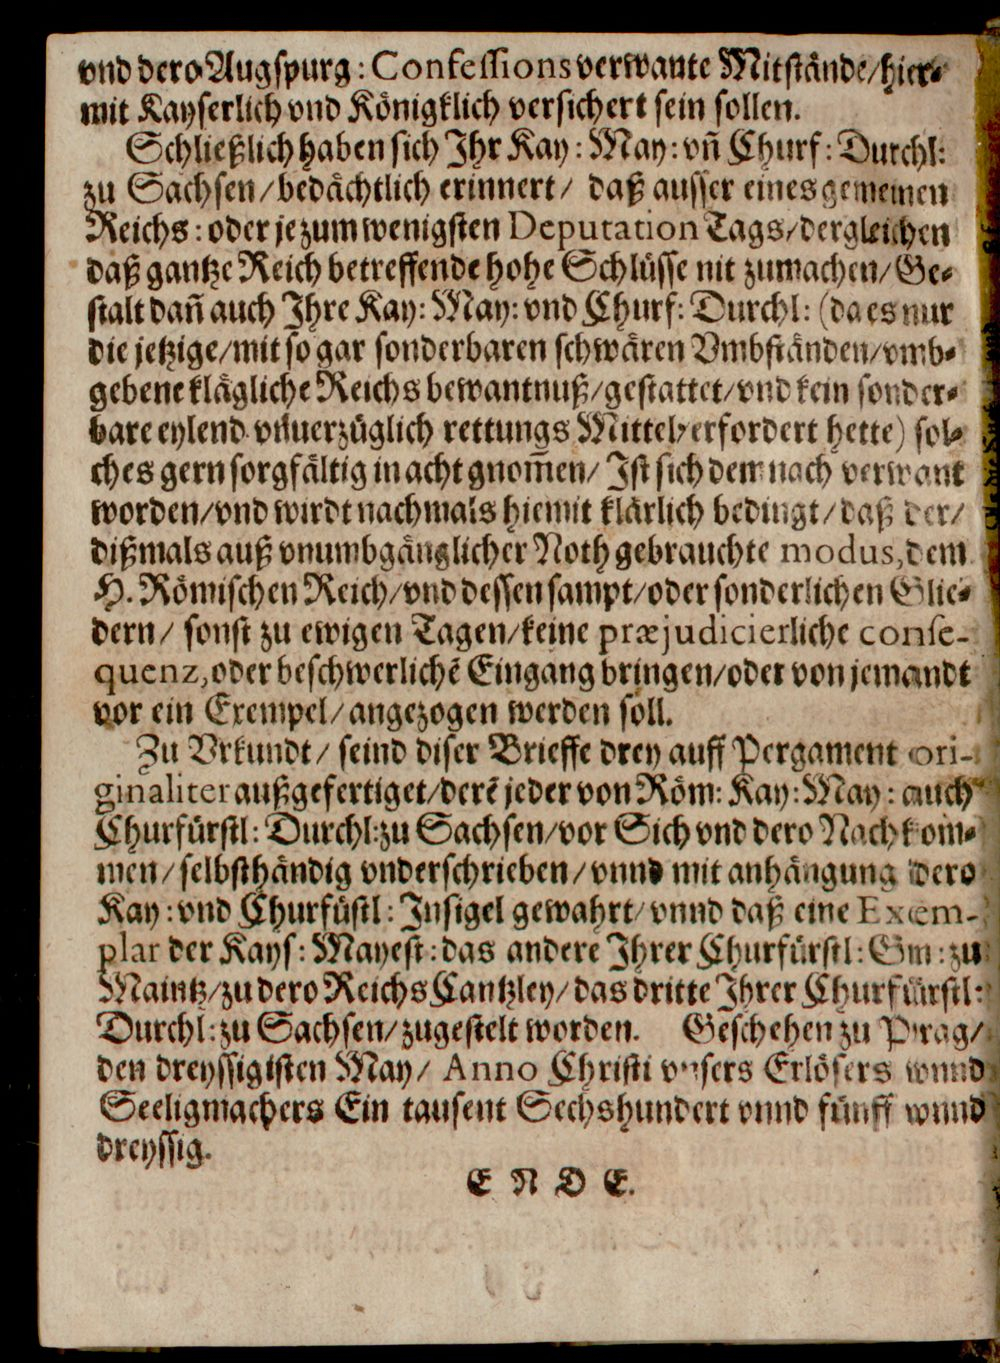 vnd dero Augspurg: Confessions verwante Mitstände/hier-
mit Kayserlich vnd Königklich versichert sein sollen.
Schließlich haben sich Ihr Kay: May: vñ Churf: Durchl:
zu Sachsen/bedächtlich erinnert/ daß ausser eines gemeinen
Reichs: oder je zum wenigsten Deputation Tags/dergleichen
daß gantze Reich betreffende hohe Schlüsse nit zumachen/Ge-
stalt dañ auch Ihre Kay: May: vnd Churf: Durchl: (da es nur
die jetzige/mit so gar sonderbaren schwären Vmbständen/vmb-
gebene klägliche Reichs bewantnuß/gestattet/vnd kein sonder-
bare eylend vñuerzüglich rettungs Mittel/erfordert hette) sol-
ches gern sorgfältig in acht gnom̃en/ Ist sich dem nach verwant
worden/vnd wirdt nachmals hiemit klärlich bedingt/daß der/
dißmals auß vnumbgänglicher Noth gebrauchte modus, dem
H. Römischen Reich/vnd dessen sampt/oder sonderlichen Glie-
dern/ sonst zu ewigen Tagen/keine præjudicierliche conse-
quenz, oder beschwerlichẽ Eingang bringen/oder von jemandt
vor ein Exempel/angezogen werden soll.
Zu Vrkundt/ seind diser Brieffe drey auff Pergament ori-
ginaliter außgefertiget/derẽ jeder von Röm: Kay: May: auch
Churfürstl: Durchl: zu Sachsen/vor Sich vnd dero Nachkom-
men/selbsthändig vnderschrieben/vnnd mit anhängung dero
Kay: vnd Churfüstl: Insigel gewahrt/vnnd daß eine Exem-
plar der Kays: Mayest: das andere Ihrer Churfürstl: Gn: zu
Maintz/zu dero Reichs Cantzley/das dritte Ihrer Churfürstl:
Durchl: zu Sachsen/zugestelt worden. Geschehen zu Prag/
den dreyssigisten May/ Anno Christi vnsers Erlösers vnnd
Seeligmachers Ein tausent Sechshundert vnnd fünff vnnd
dreyssig.
E N D E.